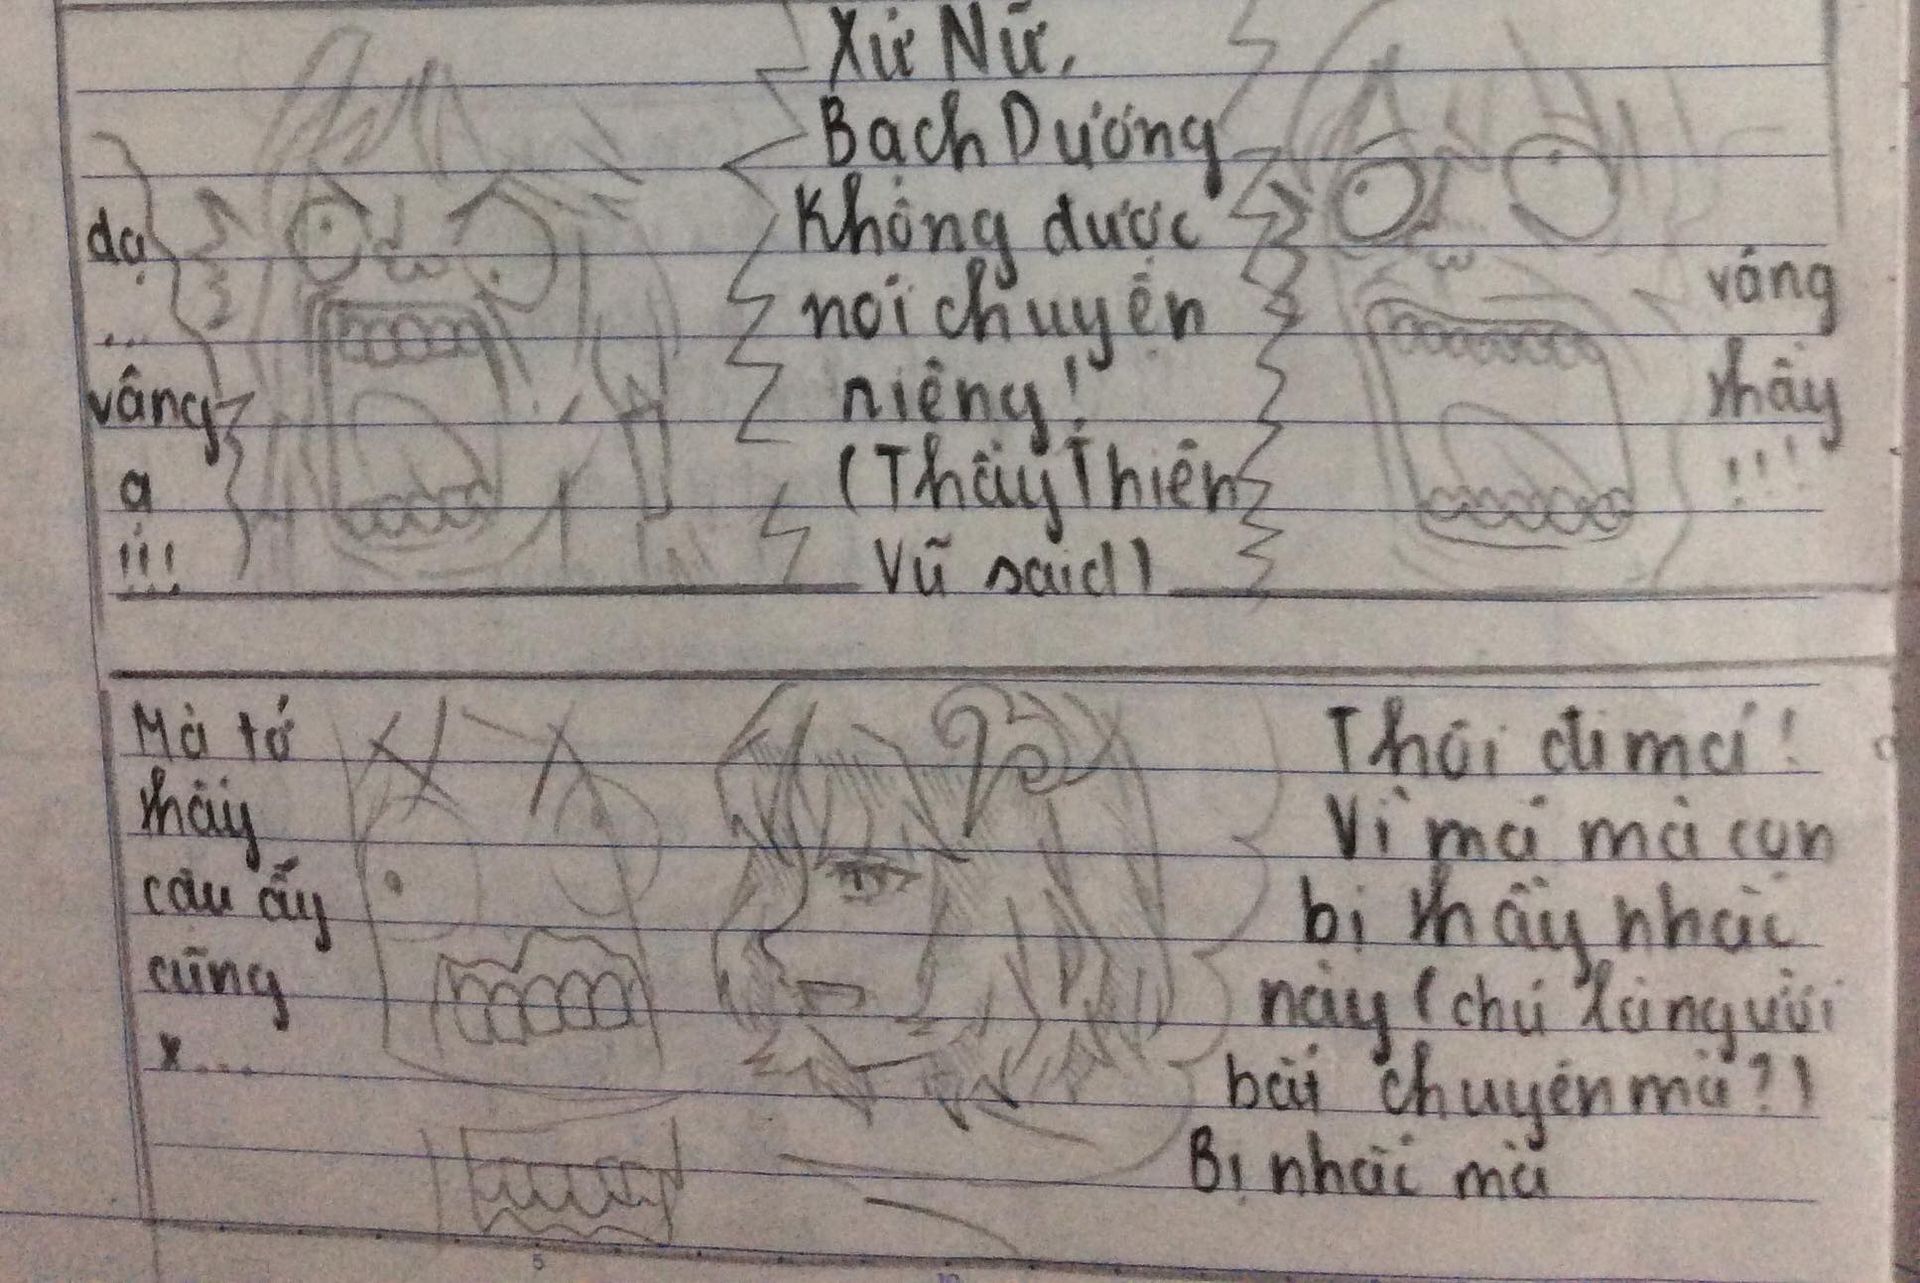 dạ
...
vâng
ạ
!!!
Xử Nữ,
Bạch Dương
Không được
nói chuyện
riêng!
(Thầy Thiên
Vũ said)
vâng
thầy
!!!
Mà tớ
thấy
cậu ấy
cũng
x...
Thôi đi má!
Vì má mà con
bị thầy nhắc
này (chú là người
bắt chuyện mà?)
Bị nhắc mà